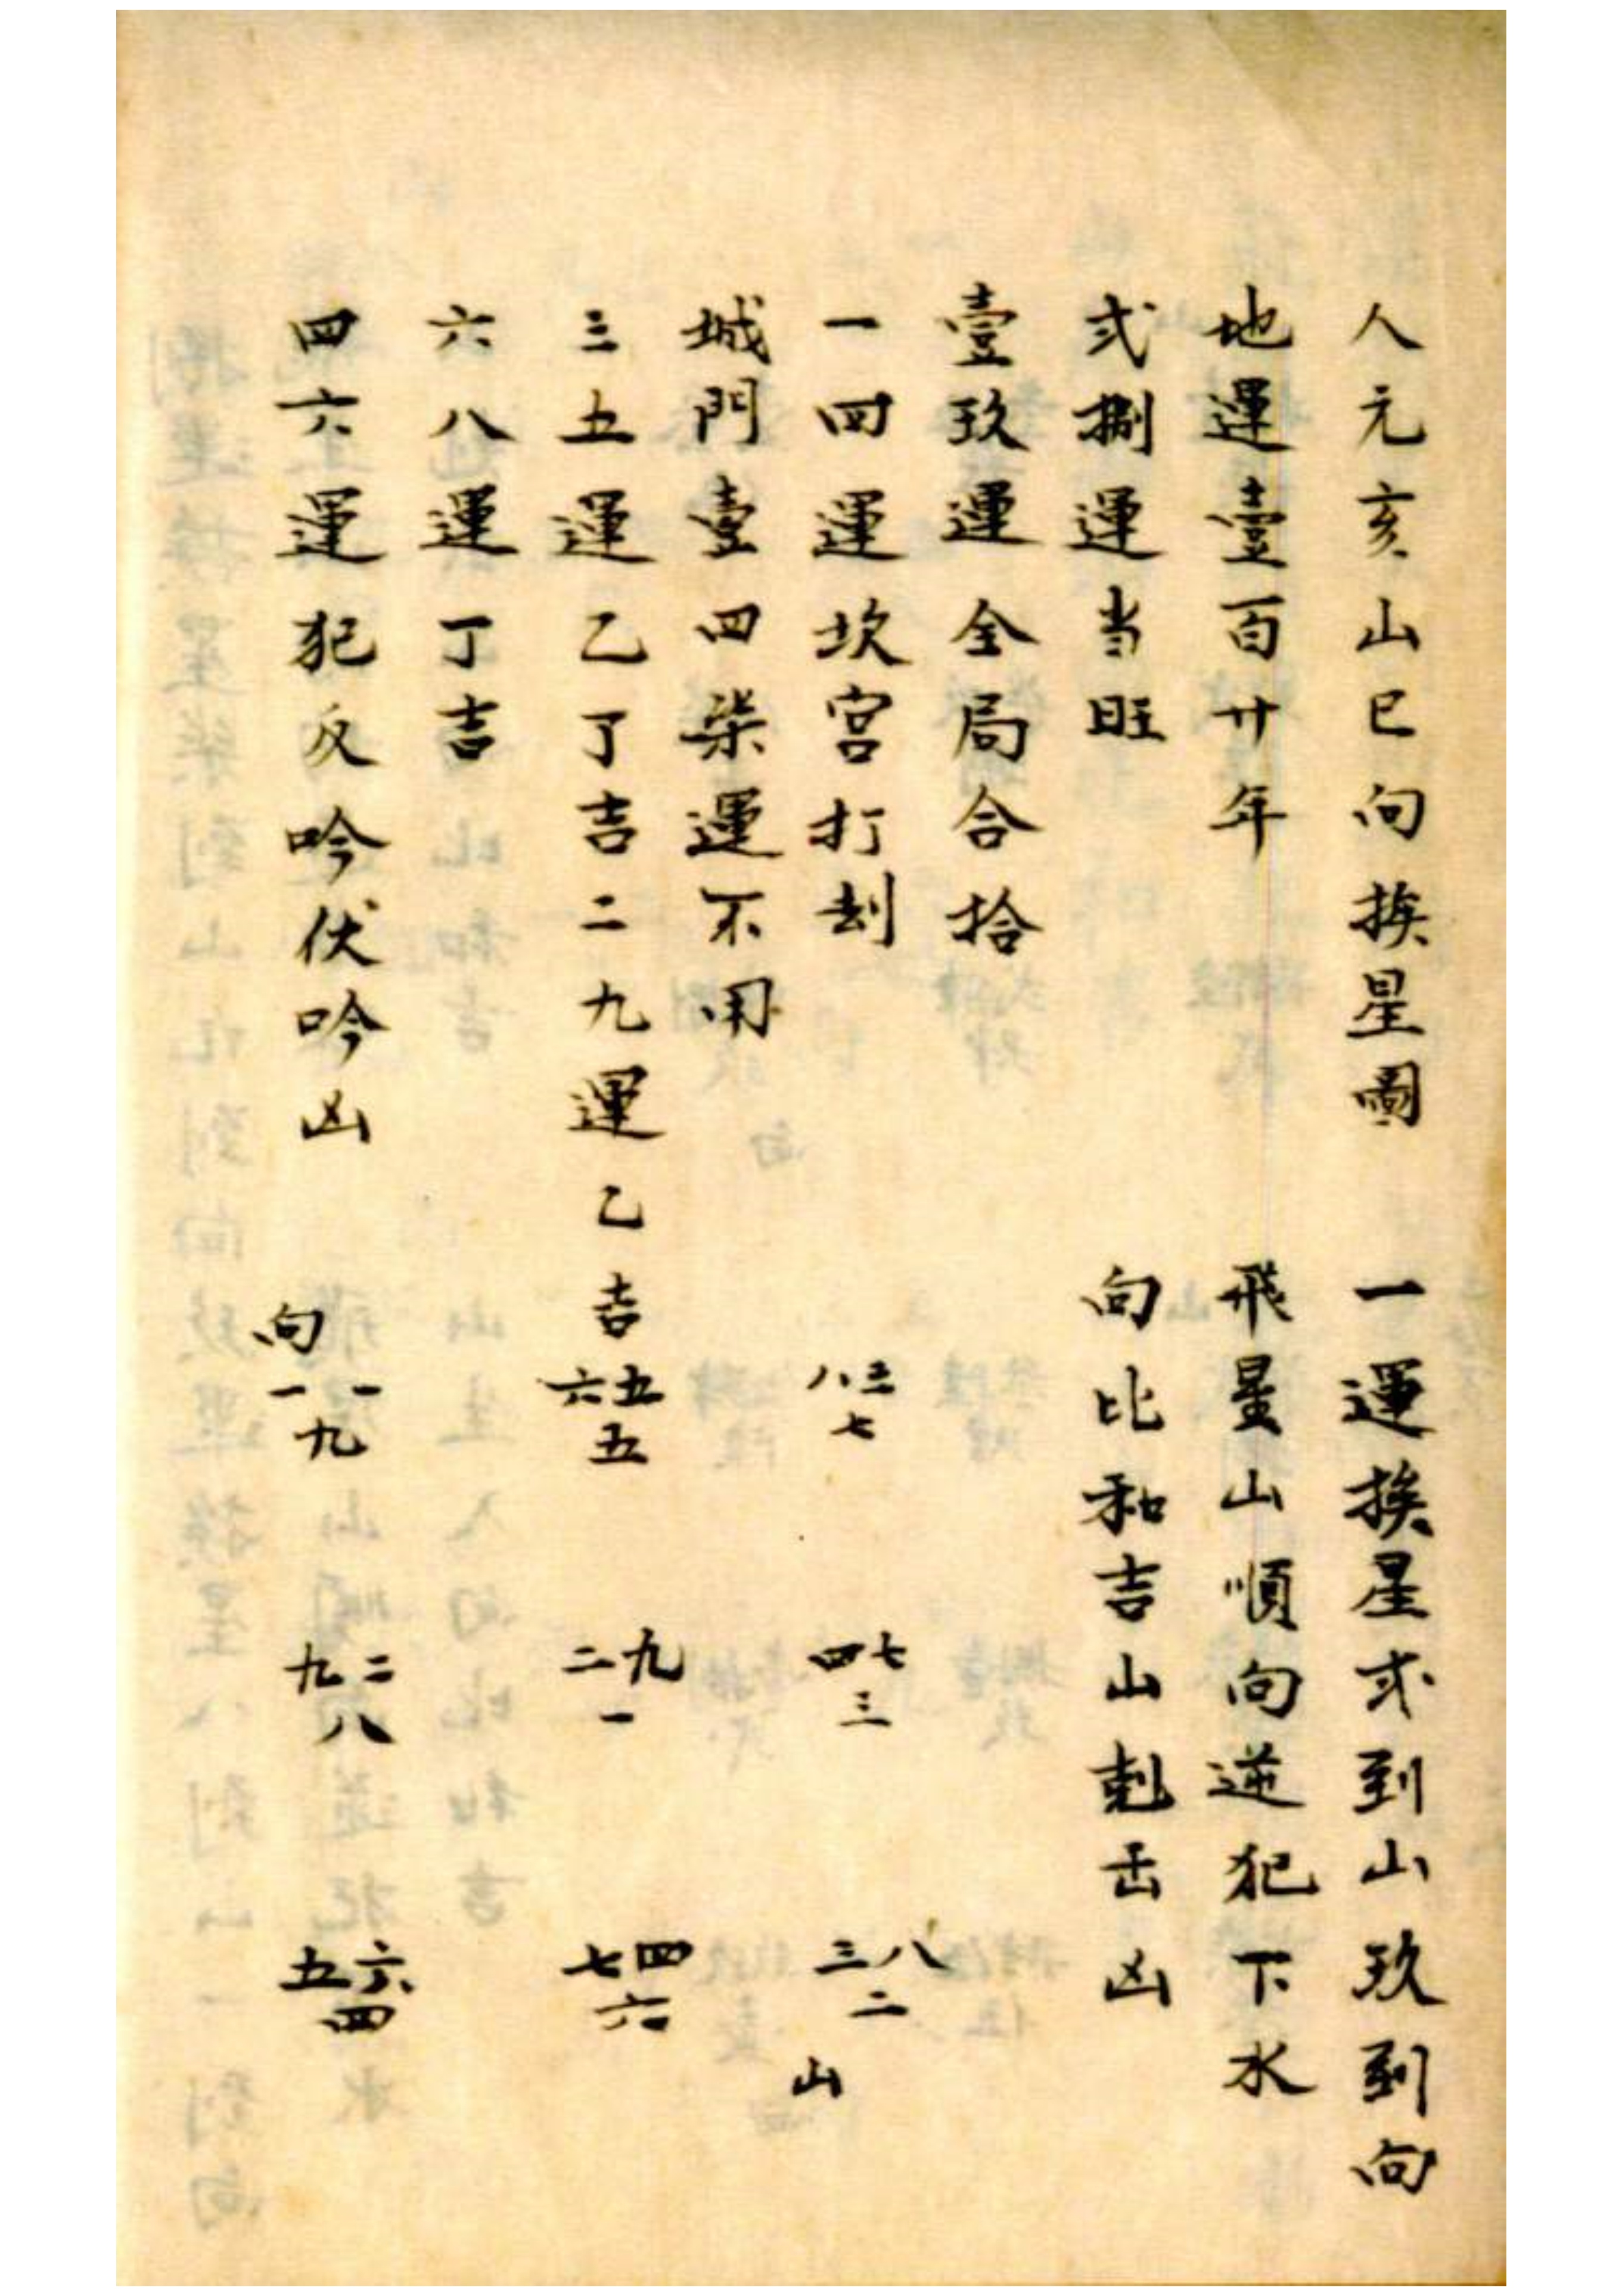 人元亥山巳向挨星圖
地運壹百廿年
弍捌運当旺
壹玖運全局合拾
一四運坎宮打刦
城門壹四柒運不用
三五運乙丁吉二九運乙吉
六八運丁吉
四六運犯反吟伏吟凶
一運挨星弍到山玖到向
飛星山順向逆犯下水
向比和吉山剋出凶
八三
七
四七
三
三八
二
山
六五
五
二九
一
七四
六
向
一一
九
九二
八
五六
四